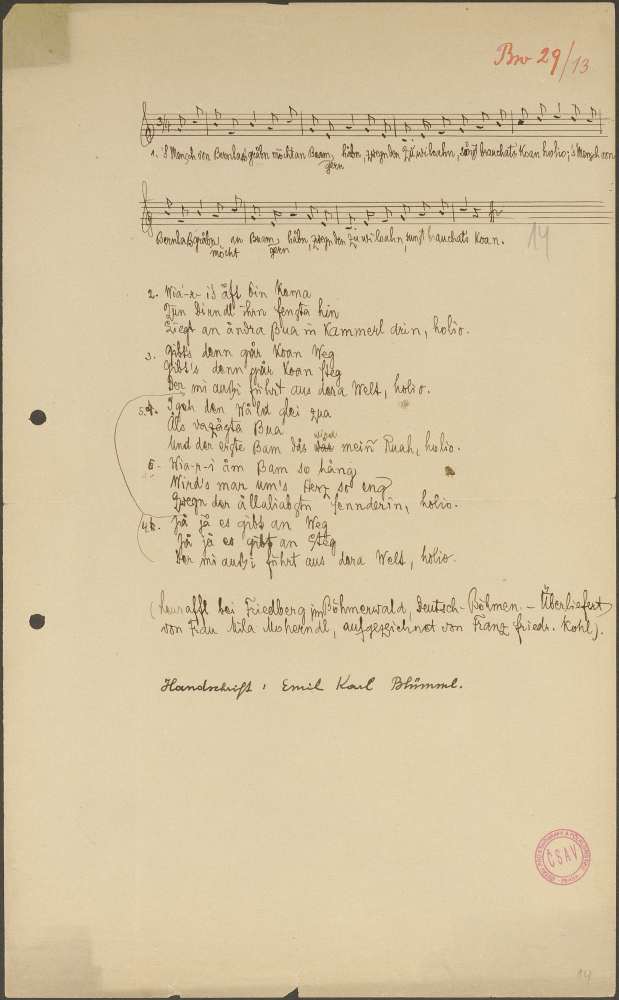 Bw 29/13
3/4
1. 's Mensch von Bernlaßgråbn möcht an Buam, håbn, zwegn den Zuwiloahn, sünst brauchats Koan holio; 's Mensch von
gern
Bernlaßgråbn, an Buam, håbn, zwegn den Zuwiloahn, sunst brauchats Koan.
möcht gern
14
2. Wia-r- i's åft bin Kema
Zun Diandl ihrn Fensta hin
Liegt an åndra Bua in Kammerl drin, holio.
3. Gibt's denn går Koan Weg
Gibt's denn går Koan Steg
Der mi außi führt aus dera Welt, holio.
5. 4. I geh den Wåld glei zua
Åls vazågta Bua
wird
Und der erste Bam dås mein Ruah, holio.
6. Wia-r-i åm Bam so häng
Wird's mar um's Herz so eng
Zwegn der ållaliabstn Sennderin, holio.
4. Jå jå es gibt an Weg
Jå jå es gibt an Steg
Der mi außi führt aus dera Welt, holio.
(Heuraffl bei Friedberg im Böhmerwald, Deutsch-Böhmen. – Überliefert
von Frau Mila Moherndl, aufgezeichnet von Franz Friedr. Kohl).
Handschrift: Emil Karl Blümml.
ČSAV
14